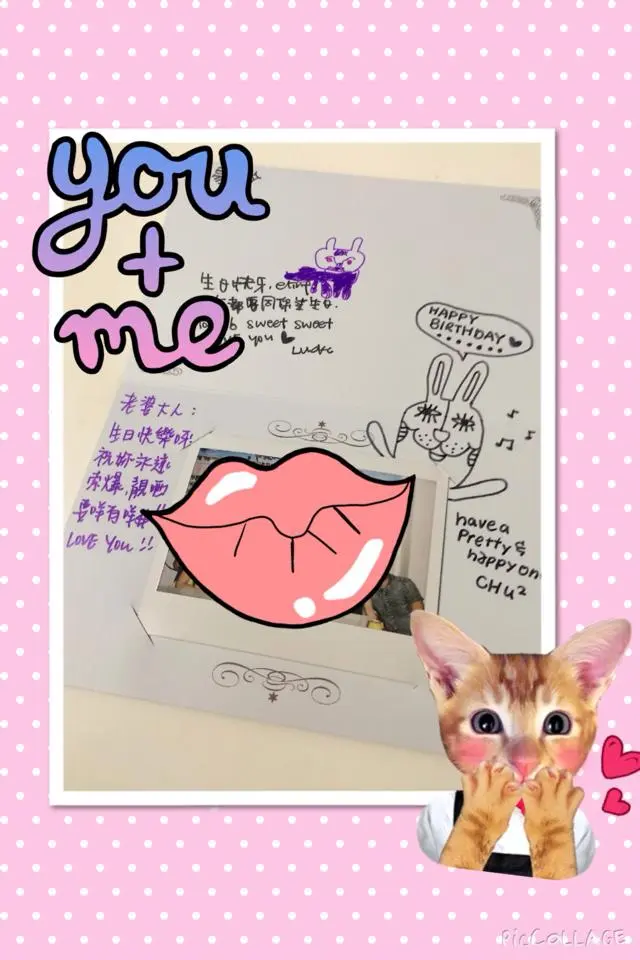 you
+
me
生日快乐,
都要同你笑生日.
sweet sweet
you ♥
HAPPY
BIRTHDAY ♥
老婆大人：
生日快樂呀
祝妳永遠
索爆,靚晒
要咩有咩
LOVE YOU !!
have a
Pretty &
happy on
CHU²
PicCOLLAGE